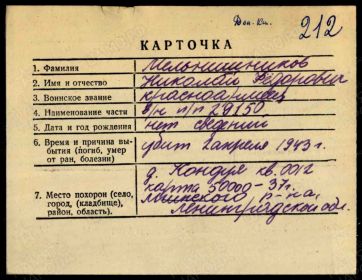 Доп. Кн.
212
КАРТОЧКА
1. Фамилия Мельничников
2. Имя и отчество Николай Фёдорович
3. Воинское звание красноармеец
4. Наименование части в/ч п/п 29150
5. Дата и год рождения нет сведений
6. Время и причина вы-
бытия (погиб, умер
от ран, болезни) убит 2 апреля 1943 г.
7. Место похорон (село,
город, (кладбище),
район, область). д. Кондуя кв. 0012
карта 50000-37г.
Мгинского р-на,
Ленинградской обл.